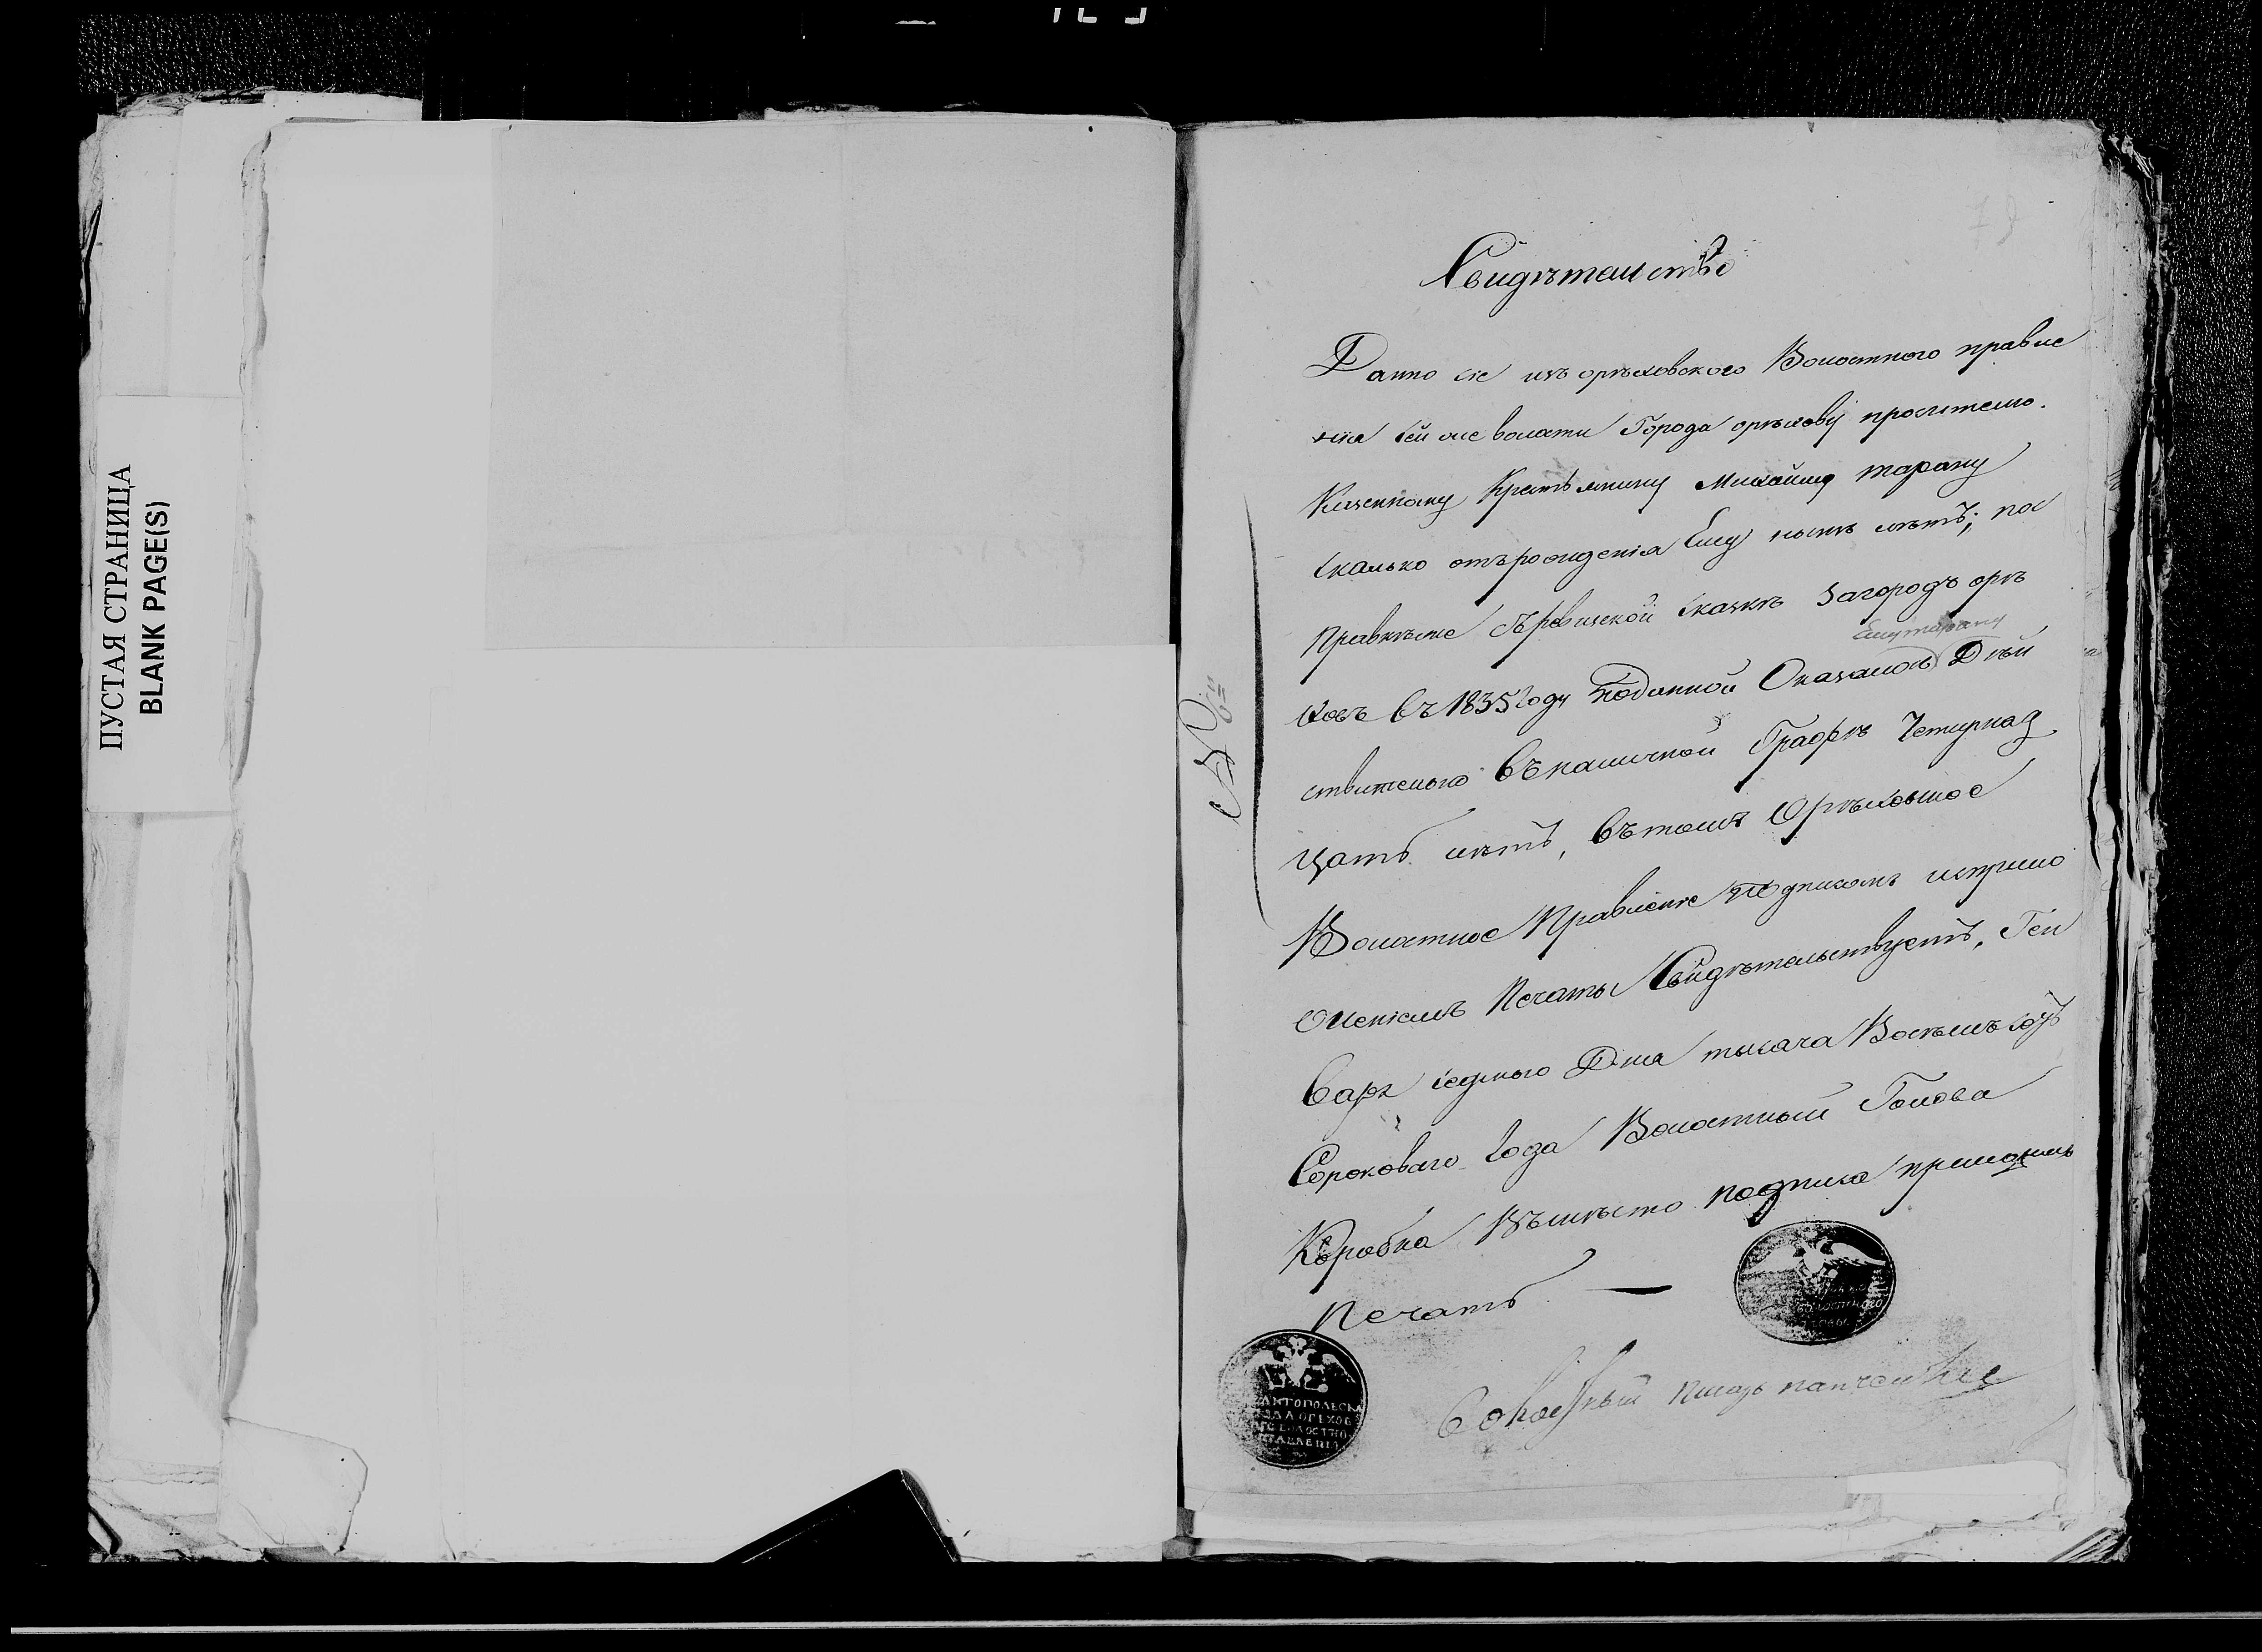 ПУСТАЯ СТРАНИЦА
BLANK PAGE(S)
79
Свидѣтельство
Данно сіе изъ орѣховского Волостного правле
нія сей же волости Города орѣхову просителю.
Казенному Крестьянину Михайлу тарану
сколько отърождения Ему нынѣ лѣтъ; по
Правкѣже съРевизской сказкѣ Загородъ орѣ
Ему тарану
ховъ въ 1835 году поданной Оказалось Дѣй
ствительно въналичной Графѣ Четырнад
цать лѣтъ, вътомъ Орѣховское
Волостное Правленіе подписомъ исприло
женіемъ Печаты Свидѣтельствуетъ, Ген
варя седмого Дня тысяча Восѣмъ сотъ
Сорокового года Волостный Голова
Коробка Вѣместо подписа приложилъ
Печать —
№ 6=й
ВОЛОСТНОГО
Волостный Писарь